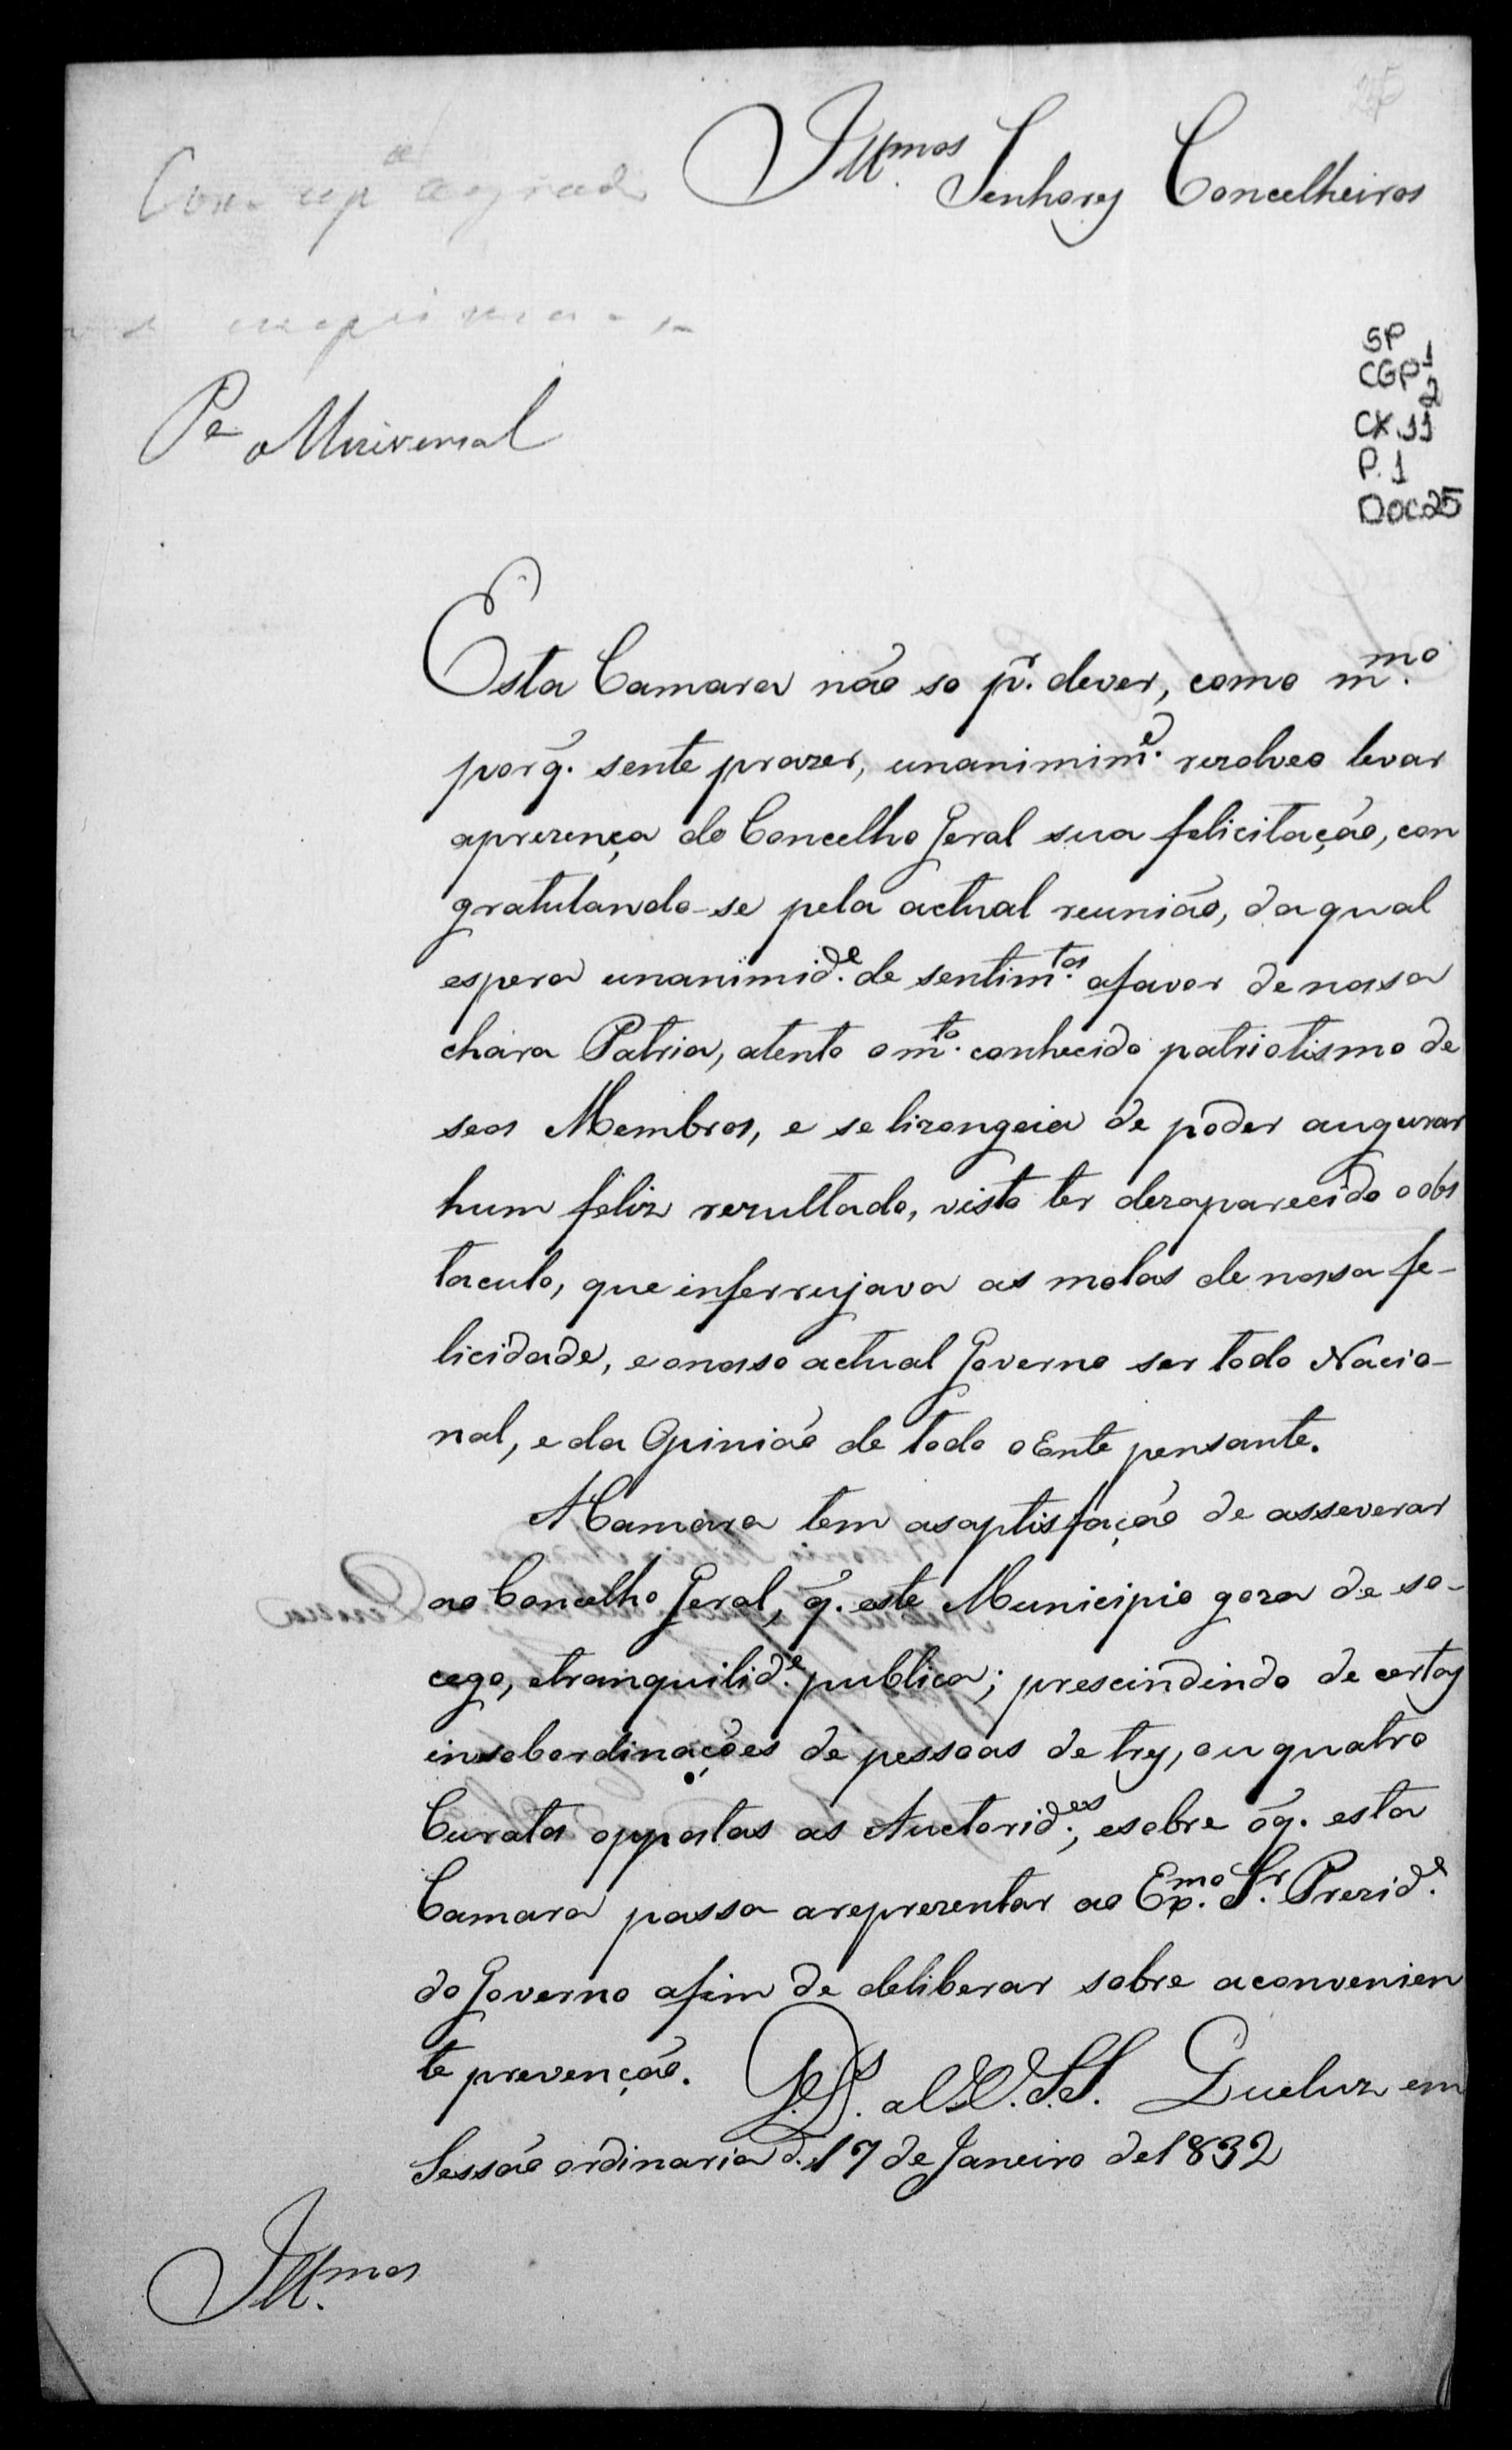 25
Illmos. Senhores Concelheiros
SP
CGP 1
2
CX.11
P.1
DOC25
Pa o Universal
Esta Camara não so pr. dever, como mmo.
porq̃. sente prazer, unanimime. rezolveo levar
aprezença do Concelho Geral sua felicitação, con
gratulando-se pela actual reunião, daqual
espera unanimide. de sentimtos. afavor denossa
chara Patria, atento o mto. conhecido patriotismo de
seos Membros, e se lizongeia de poder augurar
hum feliz rezultado, visto ter dezaparecido o obs
taculo, que inferrujava as molas de nossa fe-
licidade, e onosso actual Governo ser todo Nacio-
nal, e da Opinião de todo o Ente pensante.
A Camara tem asaptisfação de asseverar
ao Concelho Geral, q̃. este Municipio goza de so-
cego, etranquilide. publica; prescindindo de certas
insobordinações de pessoas de tres, ou quatro
Curatos oppostas as Auctorides., esobre oq̃. esta
Camara passa areprezentar ao Exmo. Sr. Prezide.
do Governo afim de deliberar sobre aconvenien
te prevenção. Ds. G. a V.V.S.S. Queluz em
Sessão ordinaria d. 17 de Janeiro de 1832
Illmos.